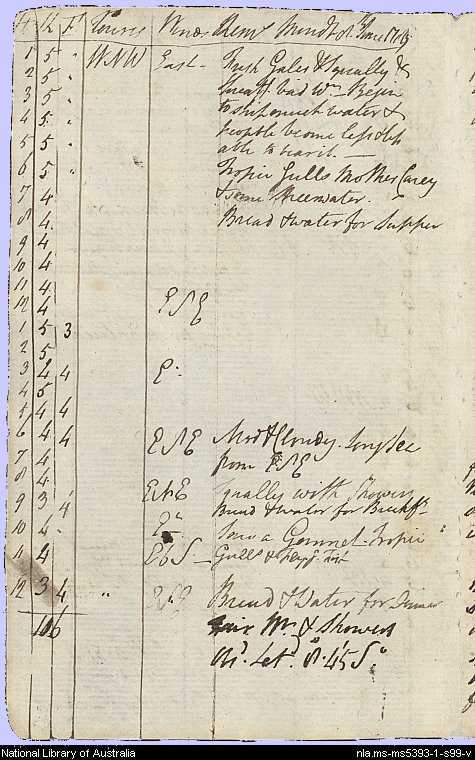 H K F Courses Winds Remks Mond. 8th June 1789
1 5 " WNW East - Fresh Gales & Squally &
2 5 " bad Wr. Begin
3 5 " to ship much water &
4 5 " people become less & less
5 5 " able to bear it. —
6 5 " Tropic Gulls Mother Carey
7 4 & some Sheerwater.
8 4 Bread & water for Supper
9 4
10 4
11 4
12 4 ESE
1 5 3
2 5
3 4 4 E.
4 5
5 4 4
6 4 4 ESE Modt & Cloudy. Long Sea
7 4 from ESE
8 4
9 3 4 EbE qually with Showers
Bread & water for Breakft.
10 4 Saw a Gannet - Tropic
11 4 EbS - Gulls & Flyg. Fish
12 3 4 " ESE Bread & Water for Dinner
106 Fair Wr. & Showers
Or. Lat. 8°.45 S.
National Library of Australia
nla.ms-ms5393-1-s99-v